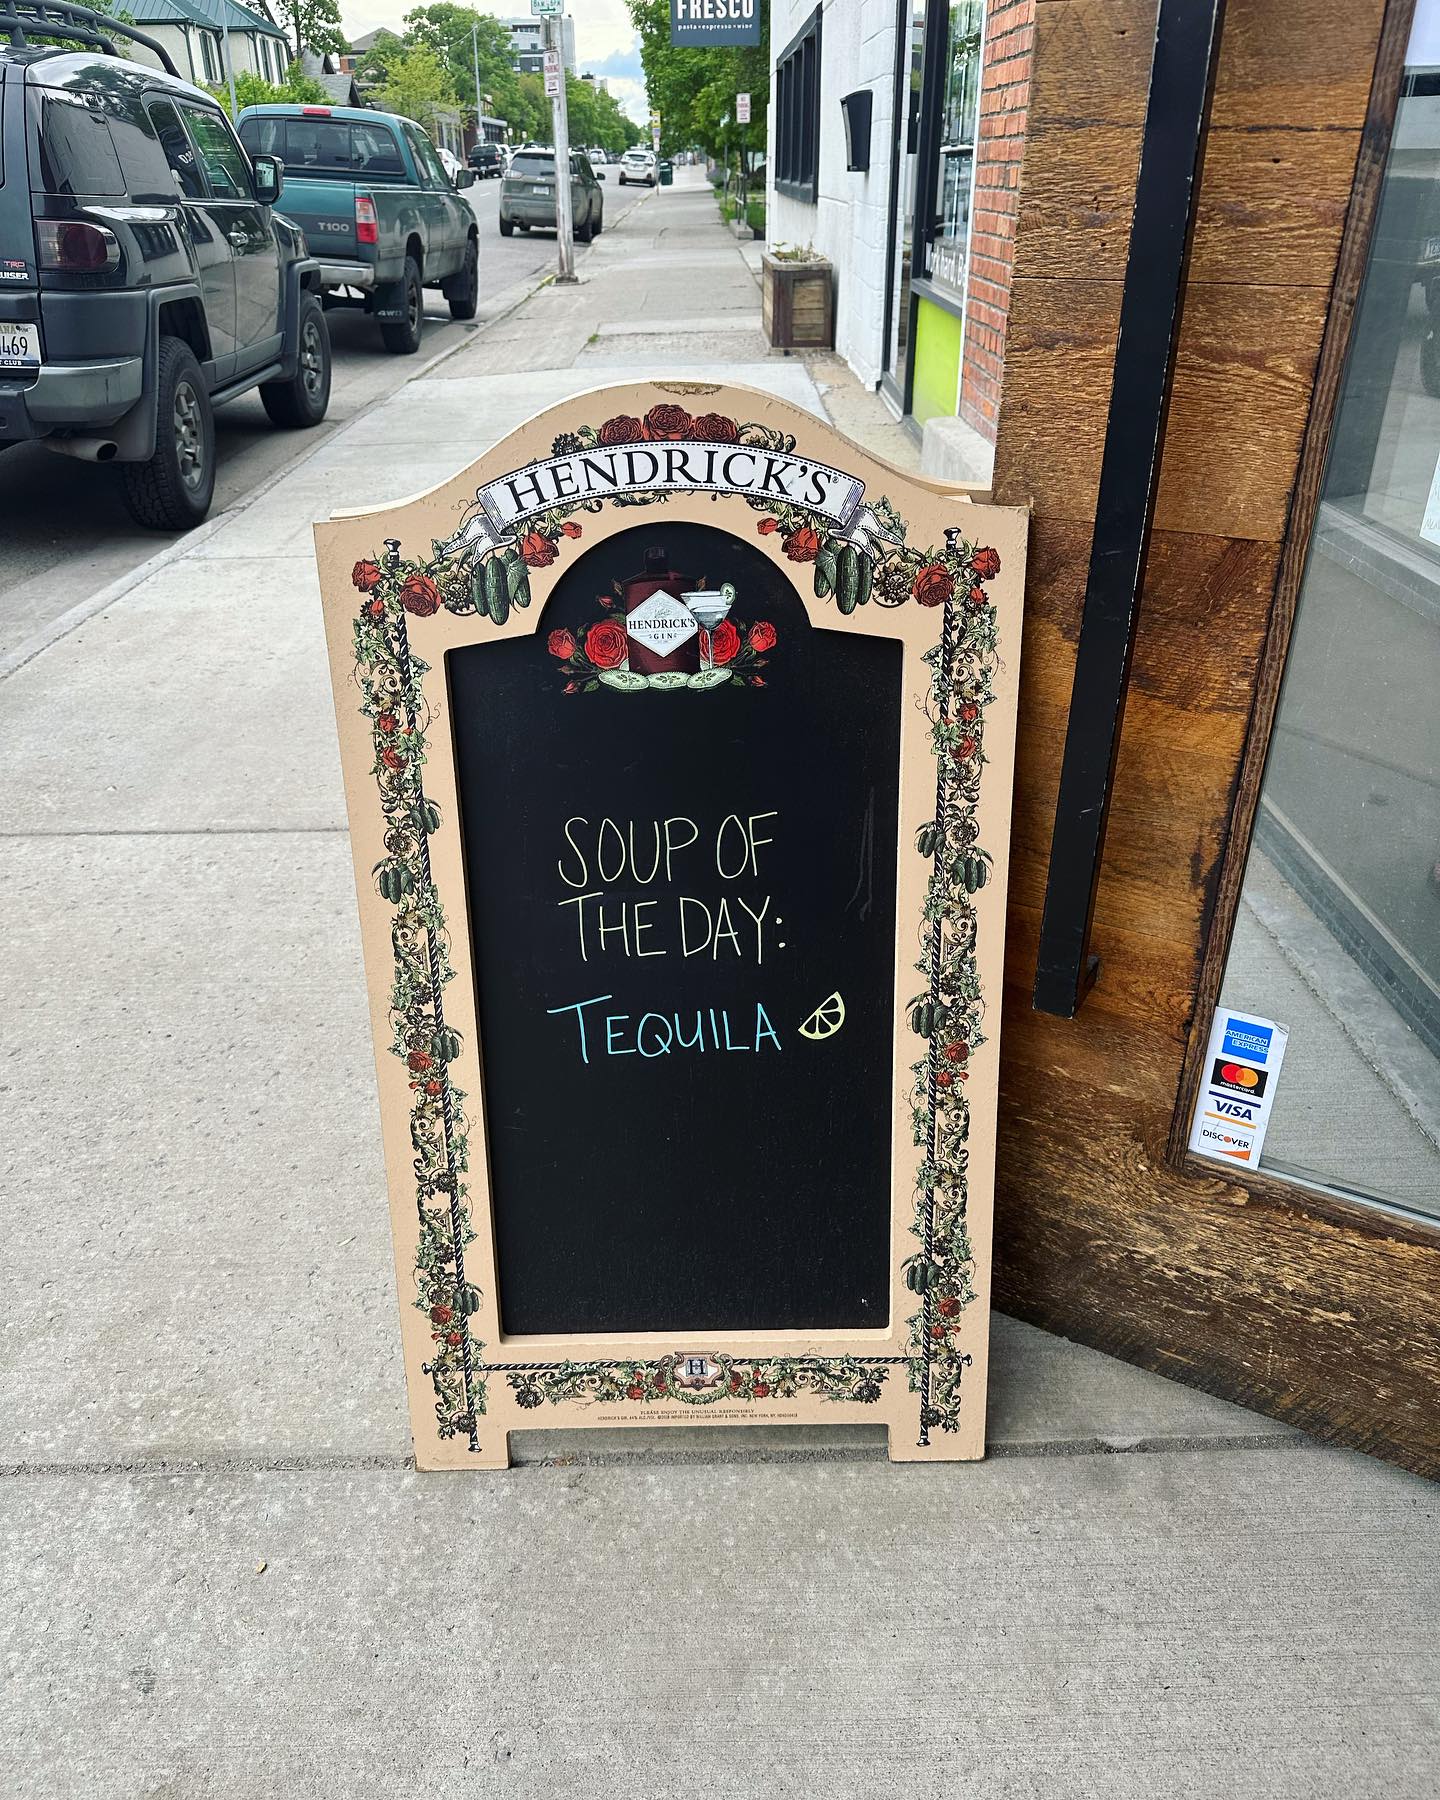 FRESCO
pasta • espresso • wine
T100
4WD
TRD
469
CLUB
HENDRICK'S®
HENDRICK'S
GIN
SOUP OF
THE DAY:
TEQUILA
H
PLEASE ENJOY THE UNUSUAL RESPONSIBLY
AMERICAN
EXPRESS
mastercard
VISA
DISCOVER